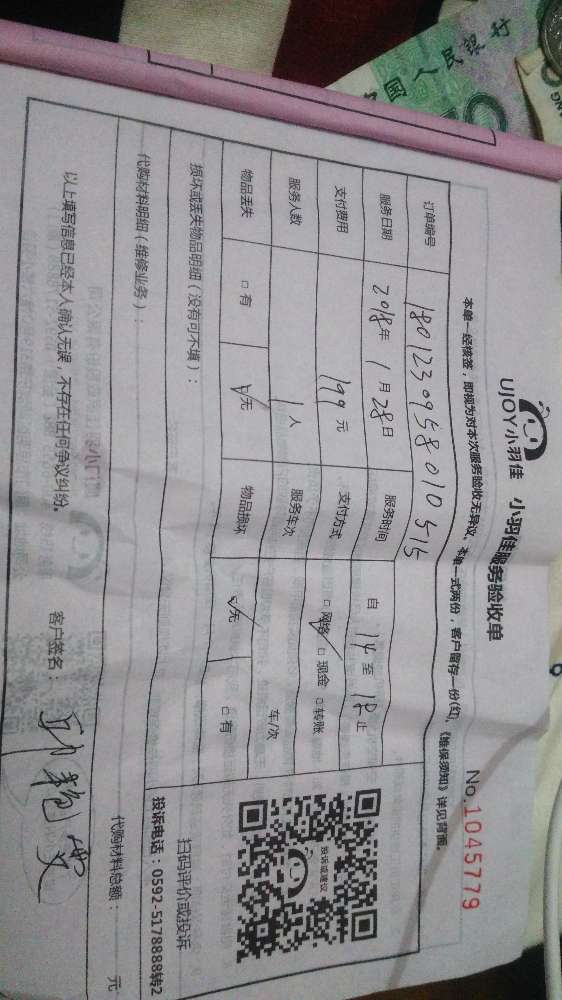 UJOY小羽佳 小羽佳服务验收单
No.1045779
本单一经核签，即视为对本次服务验收无异议、本单一式两份，客户留存一份(红)，《维保须知》详见背面。
订单编号 1801230958010515
服务日期 2018年1月28日 服务时间 自 14 至 18 止
支付费用 199元 支付方式 ☑网络 □现金 □转账
服务人数 1人 服务车次 车/次
物品丢失 □有 ☑无 物品损坏 ☑无 □有
损坏或丢失物品明细（没有可不填）：
代购材料明细（维修业务）：
代购材料总额： 元
以上填写信息已经本人确认无误，不存在任何争议纠纷。 客户签名：
投诉或建议
扫码评价或投诉
投诉电话：0592-5178888转2
国人民银行